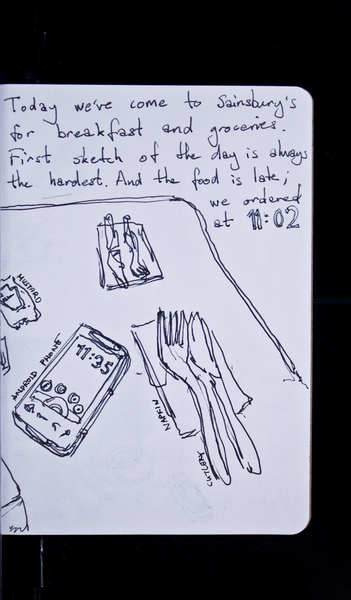 Today we've come to Sainsbury's
for breakfast and groceries.
First sketch of the day is always
the hardest. And the food is late;
we ordered
at 11:02
MUSTARD
ANDROID PHONE
11:35
NAPKIN
CUTLERY